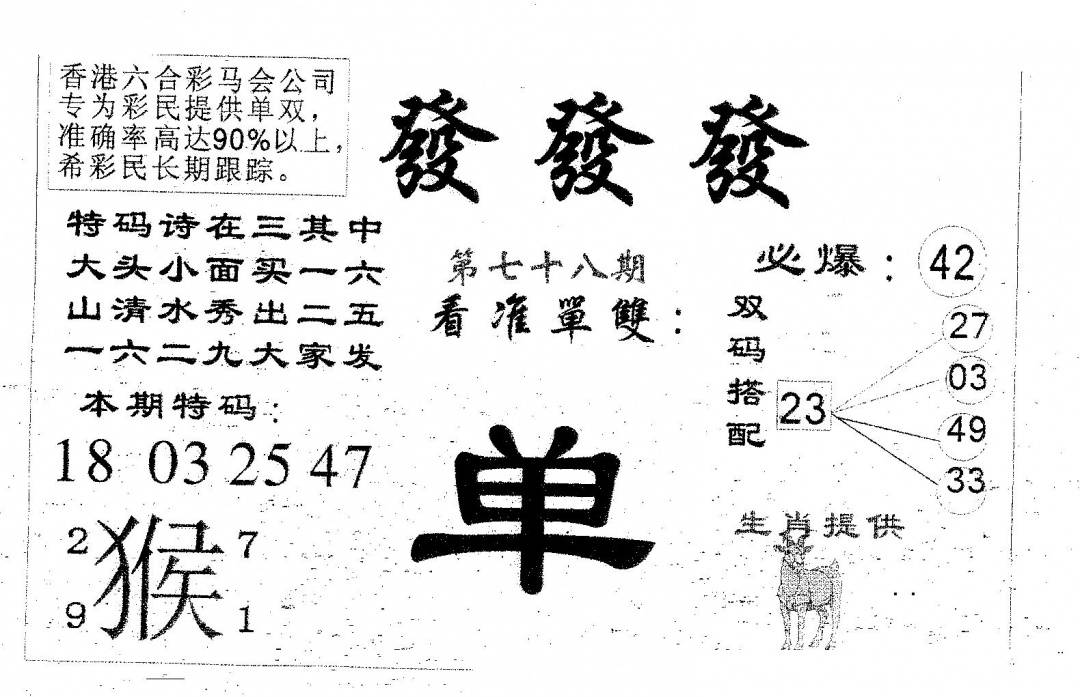 香港六合彩马会公司
专为彩民提供单双，
准确率高达90%以上，
希彩民长期跟踪。
發發發
特码诗在三其中
大头小面买一六
山清水秀出二五
一六二九大家发
本期特码：
18 03 25 47
2 7
猴
9 1
第七十八期
看准單雙：
单
必爆：42
双码搭配
23
27
03
49
33
生肖提供